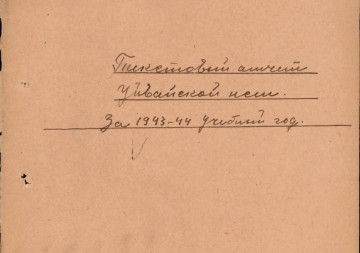 Текстовый отчет
Уйвайской нсш.
За 1943-44 учебный год.